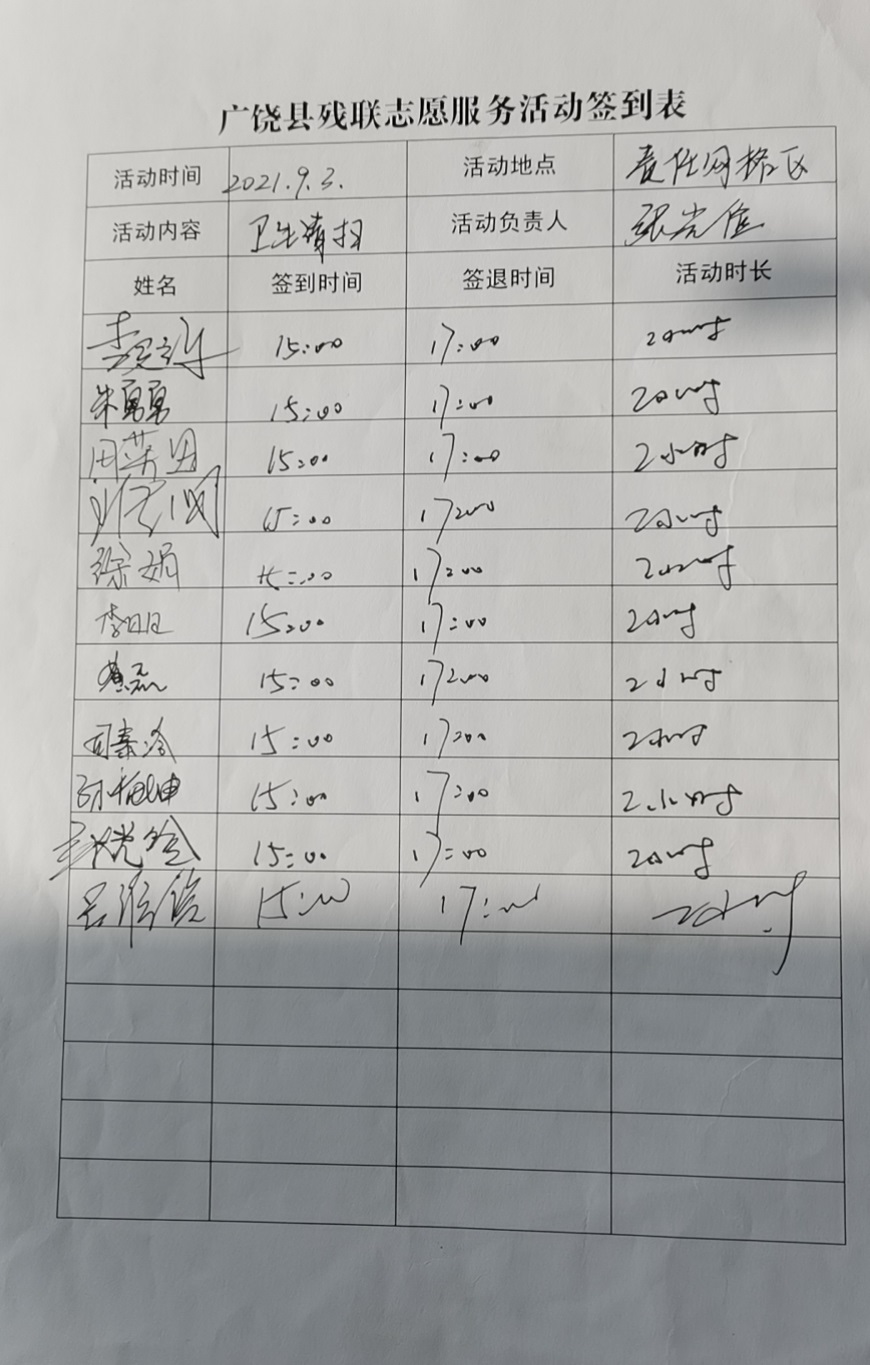 广饶县残联志愿服务活动签到表
活动时间 2021.9.3. 活动地点 责任网格区
活动内容 卫生清扫 活动负责人 张光信
姓名 签到时间 签退时间 活动时长
15:00 17:00 2小时
朱勇勇 15:00 17:00 2小时
周荣男 15:00 17:00 2小时
15:00 17:00 2小时
徐娟 15:00 17:00 2小时
李日日 15:00 17:00 2小时
15:00 17:00 2小时
司泰冷 15:00 17:00 2小时
孙旭坤 15:00 17:00 2小时
15:00 17:00 2小时
15:00 17:00 2小时